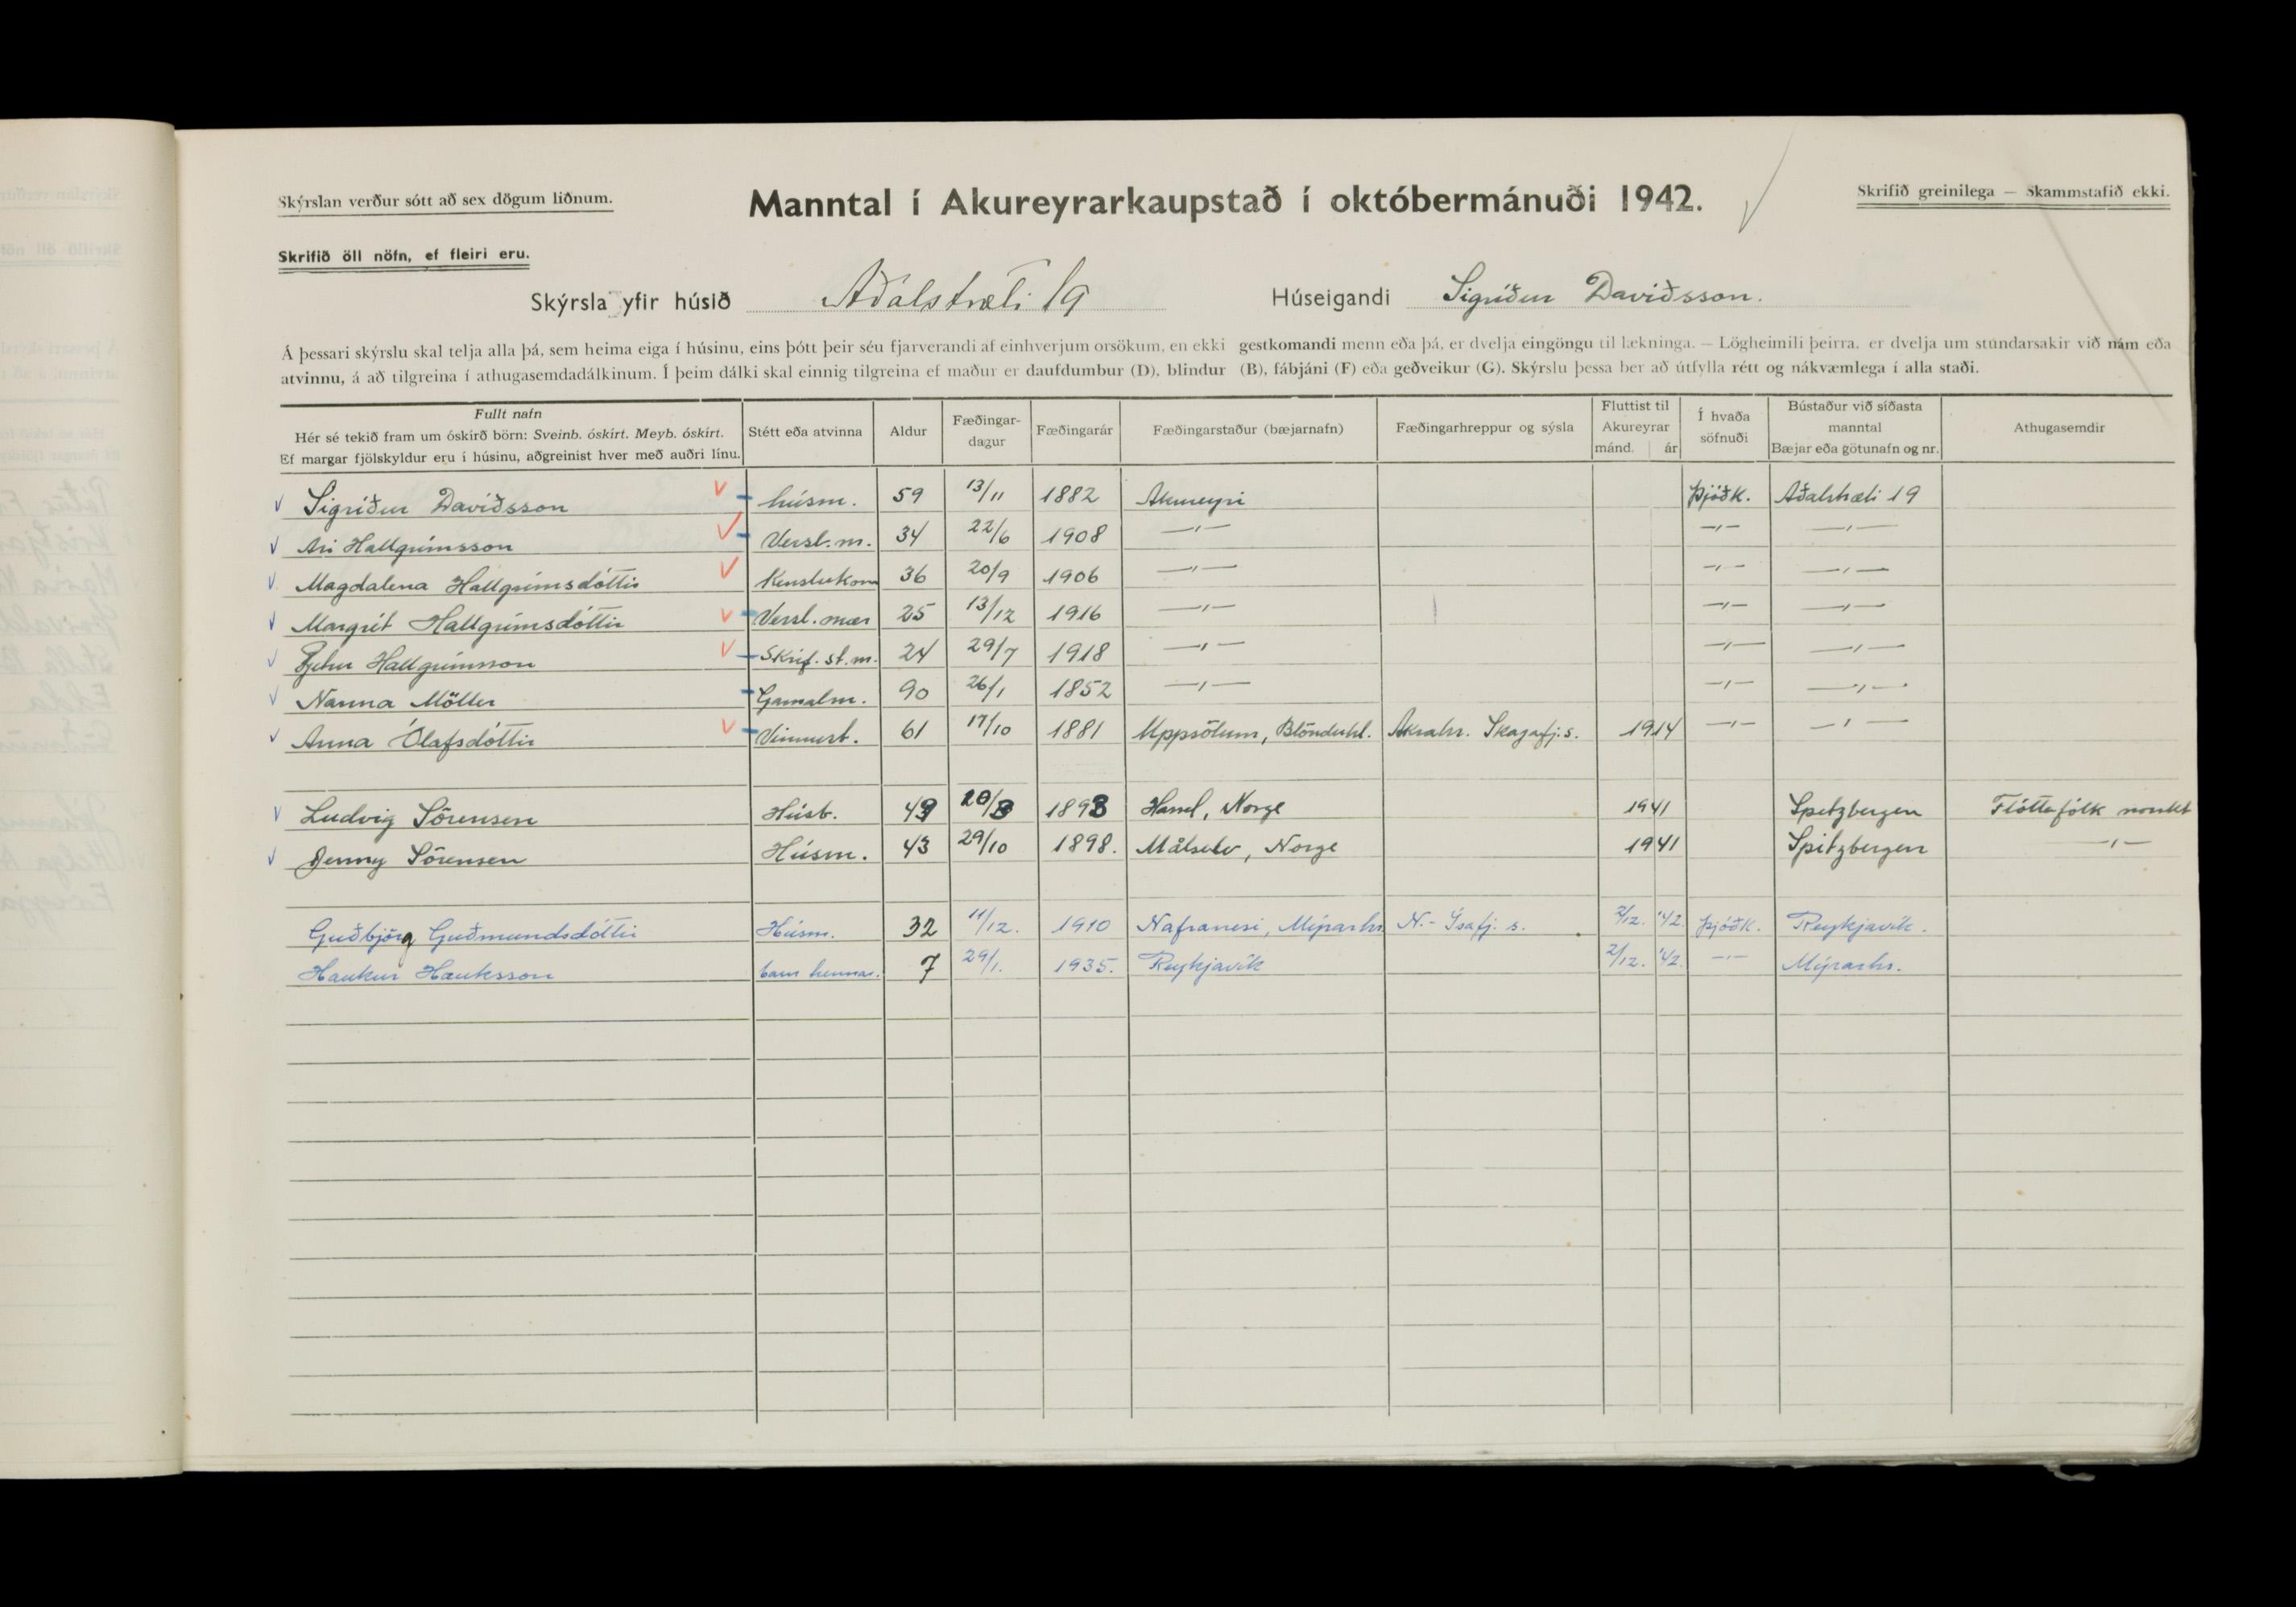 Skýrslan verður sótt að sex dögum liðnum.
Manntal í Akureyrarkaupstað í októbermánuði 1942.
Skrifið greinilega — Skammstafið ekki.
Skrifið öll nöfn, ef fleiri eru.
Skýrsla yfir húsið Aðalstræti 19 Húseigandi Sigríður Davíðsson.
Á þessari skýrslu skal telja alla þá, sem heima eiga í húsinu, eins þótt þeir séu fjarverandi af einhverjum orsökum, en ekki gestkomandi menn eða þá, er dvelja eingöngu til lækninga. — Lögheimili þeirra, er dvelja um stundarsakir við nám eða
atvinnu, á að tilgreina í athugasemdadálkinum. Í þeim dálki skal einnig tilgreina ef maður er daufdumbur (D), blindur (B), fábjáni (F) eða geðveikur (G). Skýrslu þessa ber að útfylla rétt og nákvæmlega í alla staði.
Fullt nafn
Hér sé tekið fram um óskírð börn: Sveinb. óskírt. Meyb. óskírt.
Ef margar fjölskyldur eru í húsinu, aðgreinist hver með auðri línu.
Stétt eða atvinna
Aldur
Fæðingar-
dagur
Fæðingarár
Fæðingarstaður (bæjarnafn)
Fæðingarhreppur og sýsla
Fluttist til
Akureyrar
mánd. ár
Í hvaða
söfnuði
Bústaður við síðasta
manntal
Bæjar eða götunafn og nr.
Athugasemdir
Sigríður Davíðsson húsm. 59 13/11 1882 Akureyri Þjóðk. Aðalstræti 19
Ari Hallgrímsson Versl.m. 34 22/6 1908 —„— —„— —„—
Magdalena Hallgrímsdóttir Kenslukona 36 20/9 1906 —„— —„— —„—
Margrét Hallgrímsdóttir Versl.mær 25 13/12 1916 —„— —„— —„—
Hallgrímsson Skrif.st.m. 24 29/7 1918 —„— —„— —„—
Nanna Möller Gamalm. 90 26/1 1852 —„— —„— —„—
Anna Ólafsdóttir Vinnust. 61 17/10 1881 Uppsölum, Blönduhl. Akrahr. Skagafj.s. 1914 —„— —„—
Ludvig Sörensen Húsb. 49 20/8 1893 Norge 1941 Spetzbergen Flóttafólk norskt
Jenny Sörensen Húsm. 43 29/10 1898. Målselv, Norge 1941 Spitzbergen —„—
Guðbjörg Guðmundsdóttir Húsm. 32 11/12. 1910 Nafranesi, Mýrarhr. N.-Ísafj.s. 2/12. '42 Þjóðk. Reykjavík.
Haukur Hauksson barn hennar. 7 29/1. 1935. Reykjavík 2/12. '42 —„— Mýrarhr.